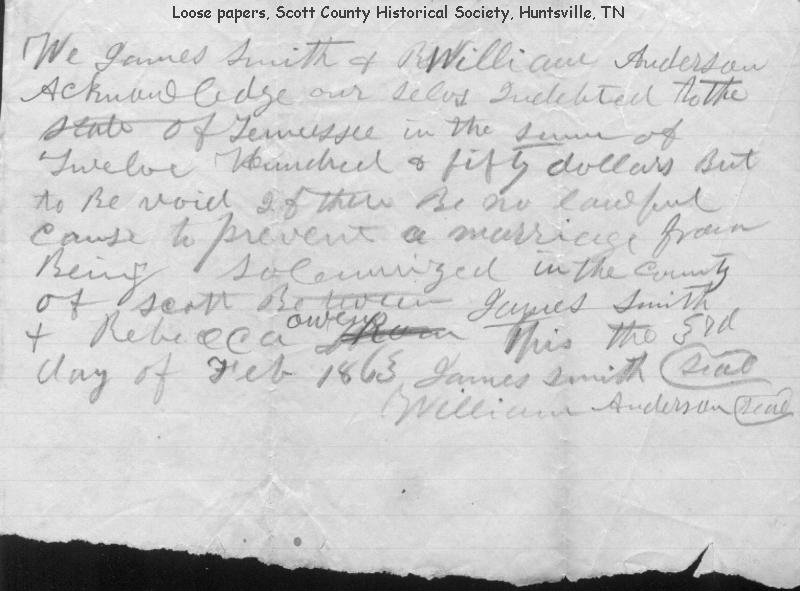 Loose papers, Scott County Historical Society, Huntsville, TN
We James Smith & William Anderson
Acknowledge our selvs Indebted to the
state of Tennessee in the sum of
Twelve Hundred & fifty dollars But
to Be void If there Be no lawful
cause to prevent a marriage from
Being Solemnized in the county
of Scott Between James Smith
& Rebecca owens This the 3rd
day of Feb 1863 James Smith seal
William Anderson seal